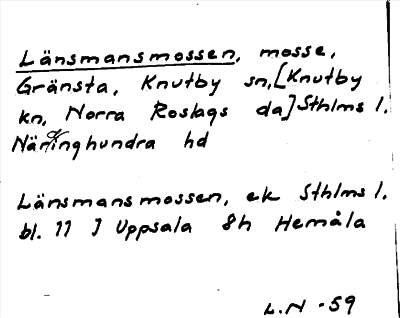 Länsmansmossen, mosse,
Gränsta, Knutby sn, [Knutby
kn, Norra Roslags da] Sthlms l.
Närdinghundra hd
Länsmansmossen, ek Sthlms l.
bl. 77 J Uppsala 8h Hemåla
L.N -59